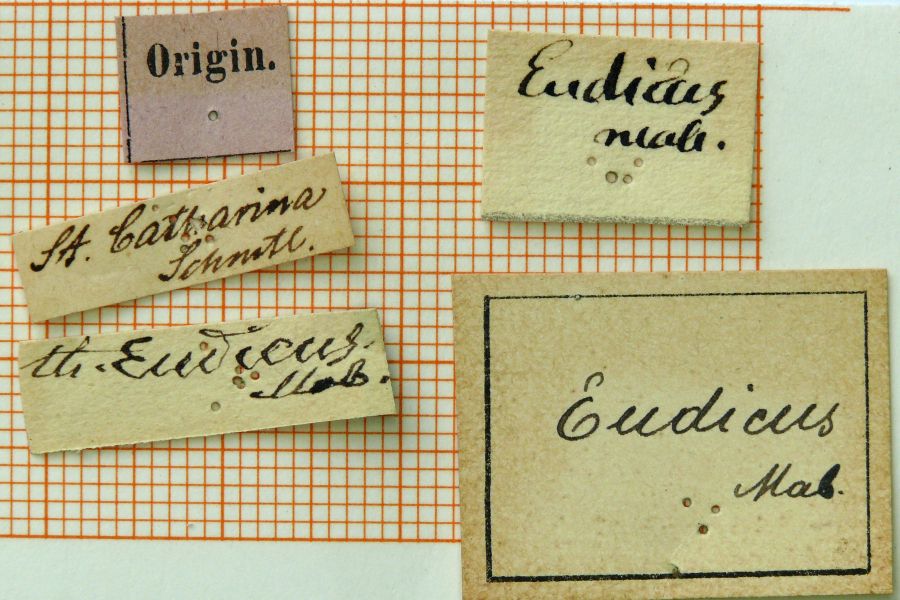 Origin.
St. Catharina
Schmtl.
th. Eudicus.
Mab.
Eudicus
mab.
Eudicus
Mab.